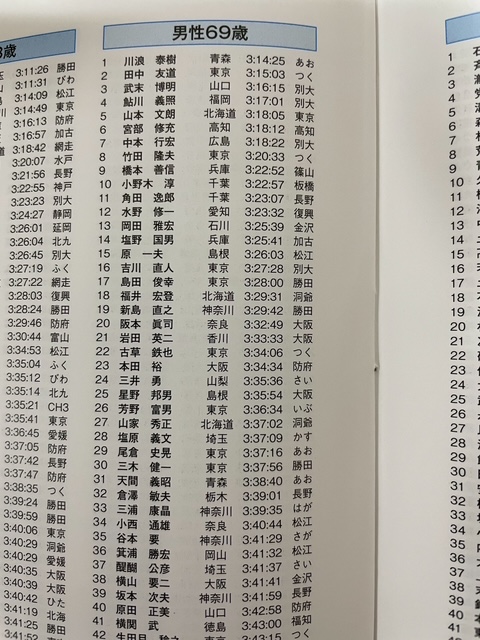 3歳
3:11:26 勝田
3:11:31 びわ
3:14:09 松江
3:14:49 東京
3:16:13 防府
3:16:57 加古
3:18:42 網走
3:20:07 水戸
3:21:56 長野
3:22:55 神戸
3:23:23 別大
3:24:27 静岡
3:26:01 延岡
3:26:04 北九
3:26:45 別大
3:27:19 ふく
3:27:22 網走
3:28:03 復興
3:28:24 勝田
3:29:46 防府
3:30:44 富山
3:34:53 松江
3:35:04 ふく
3:35:12 びわ
3:35:14 北九
3:35:21 CH3
3:35:41 東京
3:36:45 愛媛
3:37:05 防府
3:37:42 長野
3:37:47 防府
3:38:35 つく
3:39:24 勝田
3:39:59 勝田
3:40:06 東京
3:40:29 洞爺
3:40:29 愛媛
3:40:35 大阪
3:40:39 大阪
3:40:42 ひた
3:41:19 北海
3:41:25 勝田
男性69歳
1 川浪 泰樹 青森 3:14:25 あお
2 田中 友道 東京 3:15:03 つく
3 武末 博明 山口 3:16:15 別大
4 鮎川 義照 福岡 3:17:01 別大
5 山本 文朗 北海道 3:18:05 東京
6 宮部 修充 高知 3:18:12 高知
7 中本 行宏 広島 3:18:22 別大
8 竹田 隆夫 東京 3:20:33 つく
9 橋本 善信 兵庫 3:22:52 篠山
10 小野木 淳 千葉 3:22:57 板橋
11 角田 逸郎 千葉 3:23:07 長野
12 水野 修一 愛知 3:23:32 復興
13 岡田 雅宏 石川 3:25:39 金沢
14 塩野 国男 兵庫 3:25:41 加古
15 原 一夫 島根 3:26:03 松江
16 吉川 直人 東京 3:27:28 別大
17 島田 俊幸 東京 3:28:00 勝田
18 福井 宏登 北海道 3:29:31 洞爺
19 新島 直之 神奈川 3:29:42 勝田
20 阪本 眞司 奈良 3:32:49 大阪
21 岩田 英二 香川 3:33:33 大阪
22 古草 鉄也 東京 3:34:06 つく
23 本田 裕 大阪 3:34:34 防府
24 三井 勇 山梨 3:35:36 さい
25 星野 邦男 島根 3:35:54 大阪
26 芳野 富男 東京 3:36:34 いぶ
27 山家 秀正 北海道 3:37:02 洞爺
28 塩原 義文 埼玉 3:37:09 かす
29 尾倉 史晃 東京 3:37:16 あお
30 三木 健一 東京 3:37:56 勝田
31 天間 義昭 青森 3:38:40 あお
32 倉澤 敏夫 栃木 3:39:01 長野
33 三浦 康晶 神奈川 3:39:35 はが
34 小西 通雄 奈良 3:40:44 松江
35 谷本 要 神奈川 3:41:29 さが
36 箕浦 勝宏 岡山 3:41:32 松江
37 醍醐 公彦 埼玉 3:41:37 さい
38 横山 要二 大阪 3:41:41 金沢
39 坂本 次夫 神奈川 3:41:59 長野
40 原田 正美 山口 3:42:58 防府
41 横関 武 徳島 3:43:00 福知
42 生田目 3:43:15 つく
1
2
3
4
5
6
7
8
9
10
11
12
13
14
15
16
17
18
19
20
21
22
23
24
25
26
27
28
29
30
31
32
33
34
35
36
37
38
39
40
41